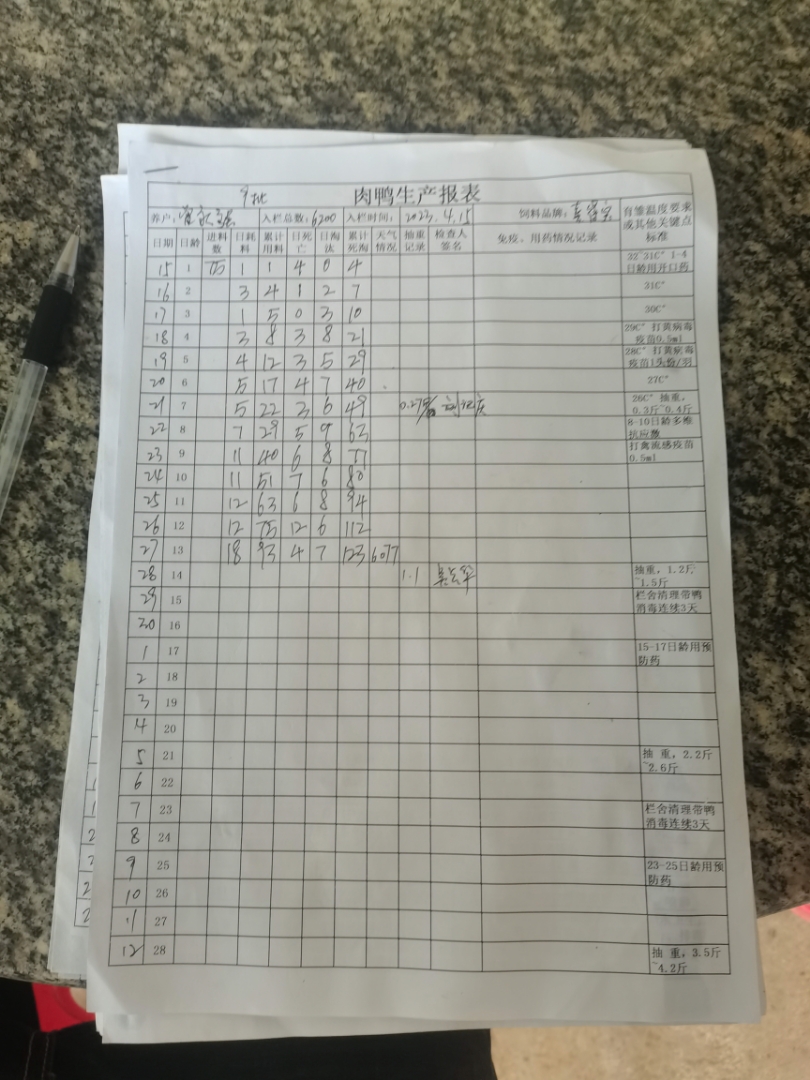 9批 肉鸭生产报表
养户: 入栏总数:6200 入栏时间: 2023.4.15 饲料品牌: 育雏温度要求或其他关键点标准
日期 日龄 进料数 日耗料 累计用料 日死亡 日淘汰 累计死淘 天气情况 抽重记录 检查人签名 免疫、用药情况记录
15 1 75 1 1 4 0 4 32~31C° 1-4日龄用开口药
16 2 3 4 1 2 7 31C°
17 3 1 5 0 3 10 30C°
18 4 3 8 3 8 21 29C° 打黄病毒疫苗0.5ml
19 5 4 12 3 5 29 28C° 打黄病毒疫苗1头数/羽
20 6 5 17 4 7 40 27C°
21 7 5 22 3 6 49 26C° 抽重,0.3斤~0.4斤
22 8 7 29 5 9 63 8-10日龄多维抗应激
23 9 11 40 6 8 77 打禽流感疫苗0.5ml
24 10 11 51 7 6 80
25 11 12 63 6 8 94
26 12 12 75 12 6 112
27 13 18 93 4 7 123 6077
28 14 1.1 抽重,1.2斤~1.5斤
29 15 栏舍清理带鸭消毒连续3天
30 16
1 17 15-17日龄用预防药
2 18
3 19
4 20
5 21 抽 重,2.2斤~2.6斤
6 22
7 23 栏舍清理带鸭消毒连续3天
8 24
9 25 23-25日龄用预防药
10 26
11 27
12 28 抽 重,3.5斤~4.2斤